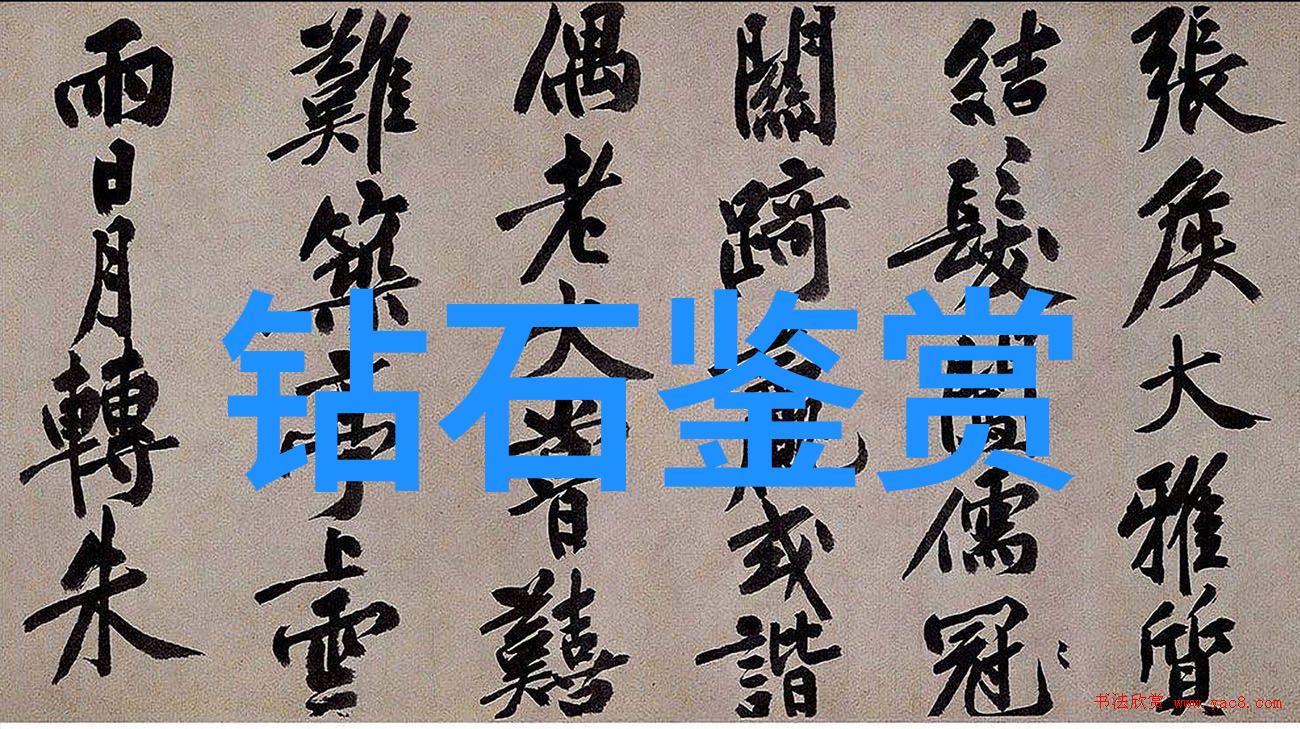 張矦大雅質
結髮儒冠
關踦或諧
偶老大昔囏
難築亭上雲
雨日月轉朱
钻石鉴赏
书法欣赏 www.yac8.com